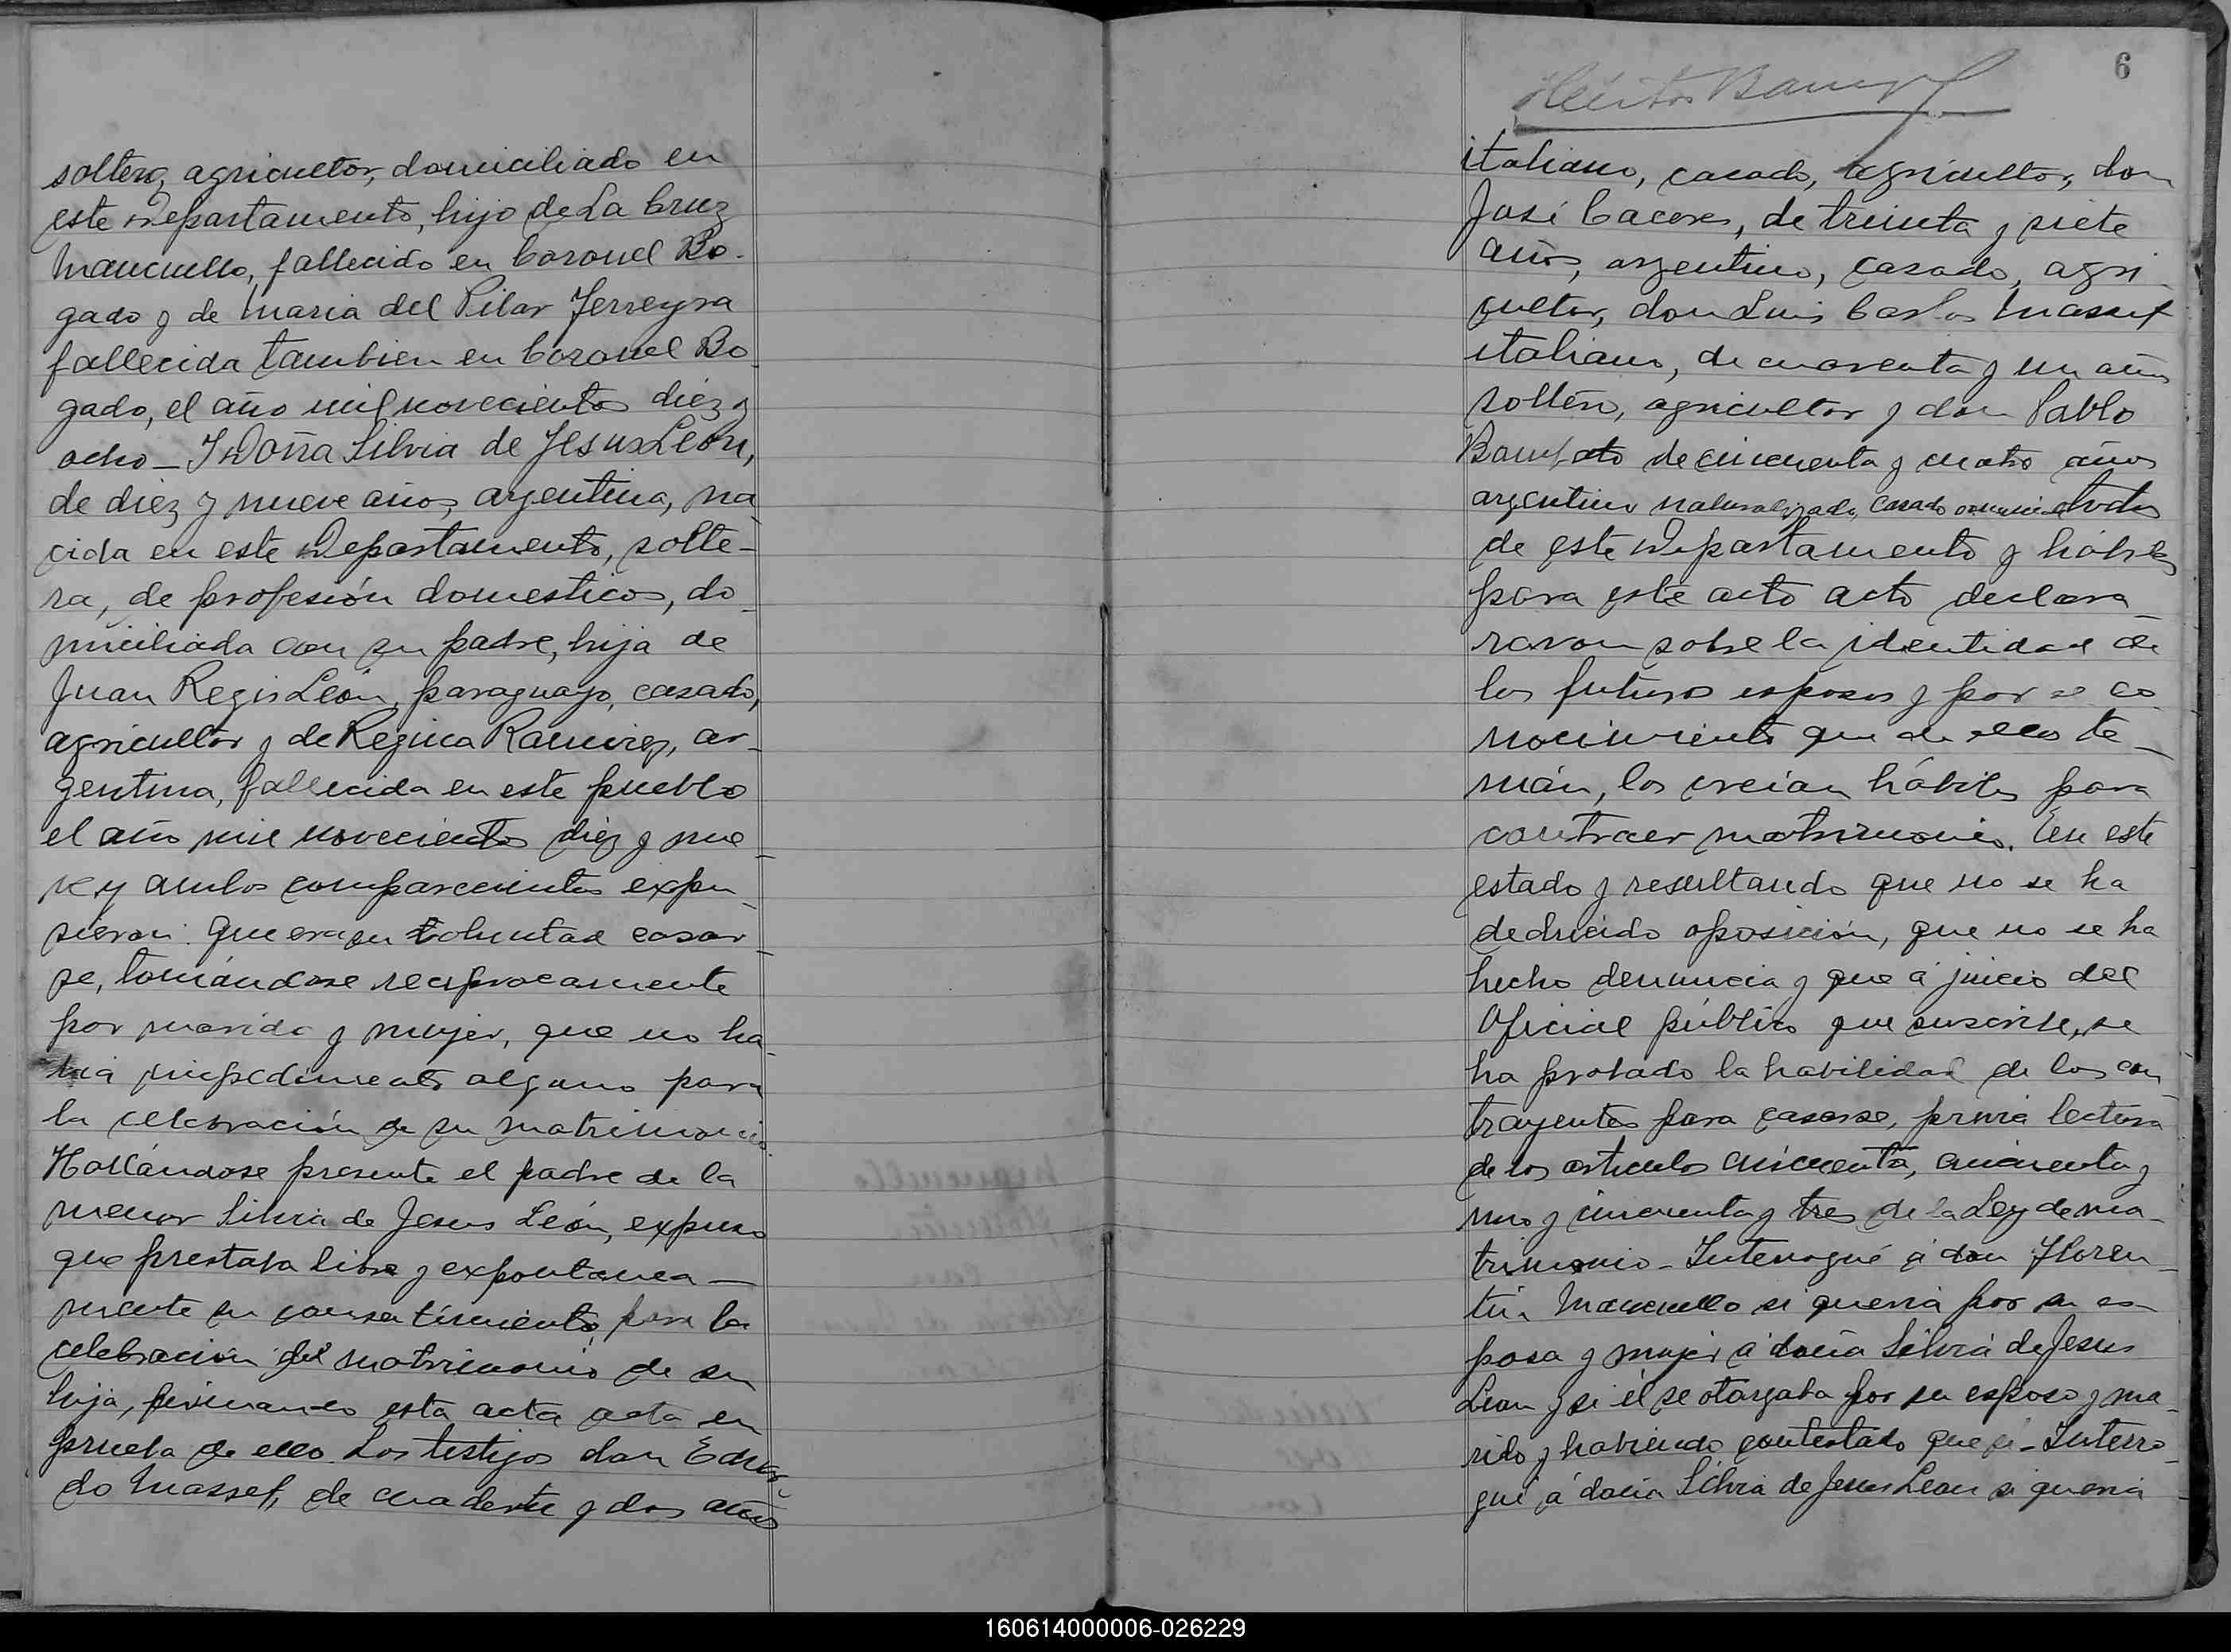 soltero, agricultor, domiciliado en
este Departamento, hijo de La Cruz
Mancuello, fallecido en Coronel Bo-
gado y de Maria del Pilar Ferreyra
fallecida tambien en Coronel Bo-
gado, el año mil novecientos diez y
ocho_ Y Doña Silvia de Jesus León,
de diez y nueve años, argentina, na
cida en este Departamento, solte-
ra, de profesión domesticos, do_
miciliada con su padre, hija de
Juan Regis León, paraguayo, casado,
agricultor y de Regina Ramirez, ar_
gentina, fallecida en este pueblo
el año mil novecientos diez y nue_
ve y ambos comparecientes expu_
sieron: Que era su voluntad casar_
se, tomándose reciprocamente
por marido y mujer, que no ha_
bia impedimento alguno para
la celebración de su matrimonio.
Hallándose presente el padre de la
menor Silvia de Jesus León, expuso
que prestaba libre y expontanea_
mente su consentimiento para la
celebración del matrimonio de su
hija, firmando esta acta acta en
prueba de ello. Los testigos don Eduar_
do Massef, de y dos años
6
italiano, casado, agricultor, don
José Caceres, de treinta y siete
años, argentino, casado, agri_
cultor, don Luis Carlos Massef
italiano, de cuarenta y un años
soltero, agricultor y don Pablo
de cincuenta y cuatro años
argentino naturalizado, casado todos
de este Departamento y hábiles
para este acto acto declara_
raron sobre la identidad de
los futuros esposos y por el co_
nocimiento que de ellos te_
nián, los creian hábiles para
contraer matrimonio. En este
estado y resultando que no se ha
deducido oposición, que no se ha
hecho denuncia y que á juicio del
Oficial público que suscribe, se
ha probado la habilidad de los con_
trayentes para casarse, prévia lectura
de los articulos cincuenta, cincuenta y
uno y cincuenta y tres de la Ley de ma_
trimonio_ Interrogué á don Floren_
tin Mancuello si queria por su es_
posa y mujer á doña Silvia de Jesus
Leon y si él se otorgaba por su esposo y ma_
rido y habiendo contestado que si_ Interro_
gué á doña Silvia de Jesus Leon si queria
160614000006-026229